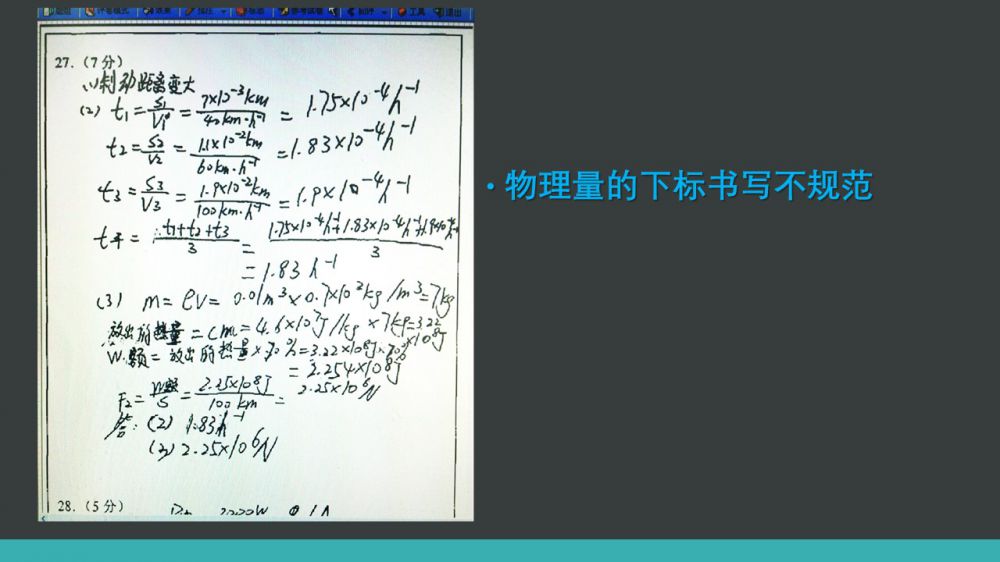 27.（7分）
(1)制动距离变大
(2) t₁=S₁/V₁=7×10⁻³km/40km·h⁻¹ = 1.75×10⁻⁴h⁻¹
t₂=S₂/V₂=1.1×10⁻²km/60km·h⁻¹ =1.83×10⁻⁴h⁻¹
t₃=S₃/V₃=1.9×10⁻²km/100km·h⁻¹ =1.9×10⁻⁴h⁻¹
• 物理量的下标书写不规范
t平=t₁+t₂+t₃/3 = 1.75×10⁻⁴h⁻¹+1.83×10⁻⁴h⁻¹+1.9×10⁻⁴h⁻¹/3
=1.83 h⁻¹
(3) m=ρV= 0.01m³×0.7×10²kg/m³=7kg
放出的热量=cm=4.6×10⁷J/kg×7kg=3.22×10⁸J
W额=放出的热量×70%=3.22×10⁸J×70%
=2.254×10⁸J
F₂=W额/S=2.25×10⁸J/100km=2.25×10⁶N
答:(2) 1.83h⁻¹
(3) 2.25×10⁶N
28.（5分）